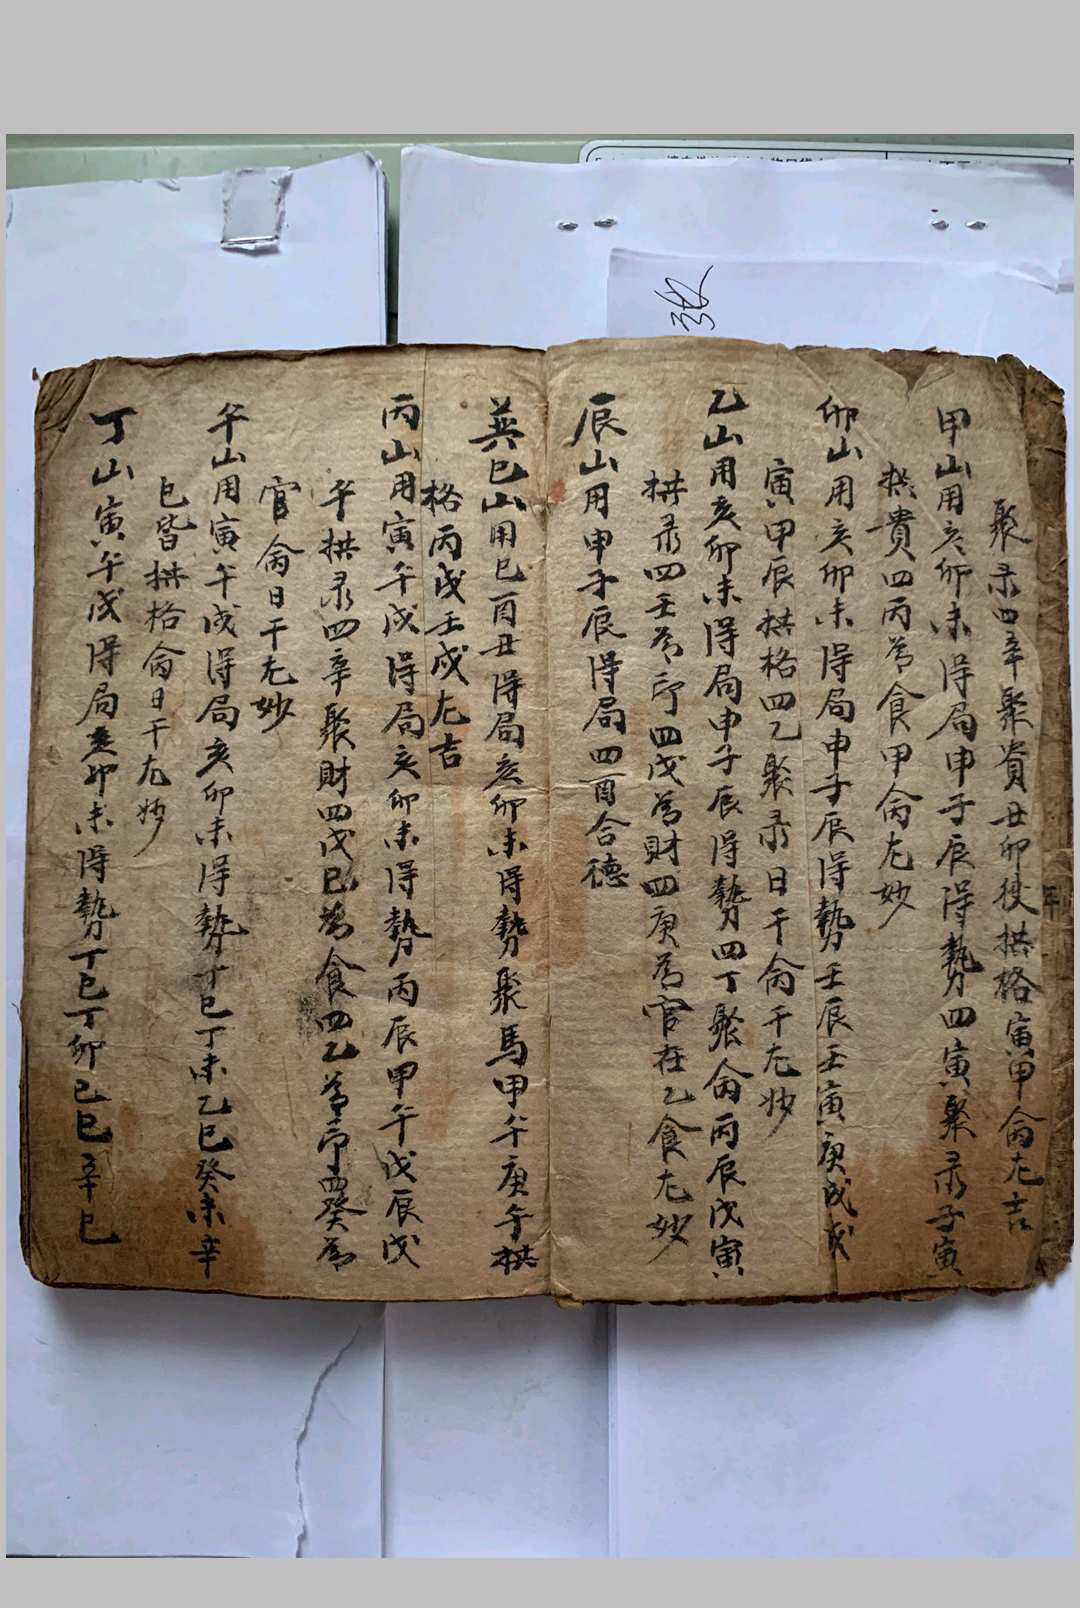 聚录四辛聚貴丑卯後拱格寅甲禽尤吉
甲山用亥卯未得局申子辰得勢四寅聚录子寅
拱貴四丙為食甲禽尤妙
卯山用亥卯未得局申子辰得勢壬辰壬寅庚戌戊
寅甲辰拱格四乙聚录日干禽干尤妙
乙山用亥卯未得局申子辰得勢四丁聚禽丙辰戊寅
拱录四壬為印四戊為財四庚為官在乙食尤妙
辰山用申子辰得局四酉合德
巽巳山用巳酉丑得局亥卯未得勢聚馬甲午庚午拱
格丙戌壬戌尤吉
丙山用寅午戌得局亥卯未得勢丙辰甲午戊辰戊
午拱录四辛聚財四戊巳為食四乙為印四癸為
官禽日干尤妙
午山用寅午戌得局亥卯未得勢丁巳丁未乙巳癸未辛
巳皆拱格禽日干尤妙
丁山寅午戌得局亥卯未得勢丁巳丁卯己巳辛巳